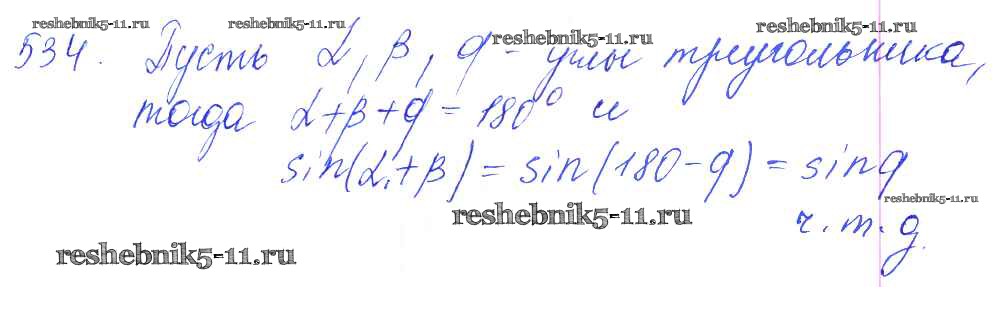 reshebnik5-11.ru reshebnik5-11.ru reshebnik5-11.ru reshebnik5-11.ru
534. Пусть α, β, φ - углы треугольника,
тогда α+β+φ = 180° и
sin(α+β) = sin(180-φ) = sinφ
reshebnik5-11.ru
reshebnik5-11.ru
ч.т.д.
reshebnik5-11.ru